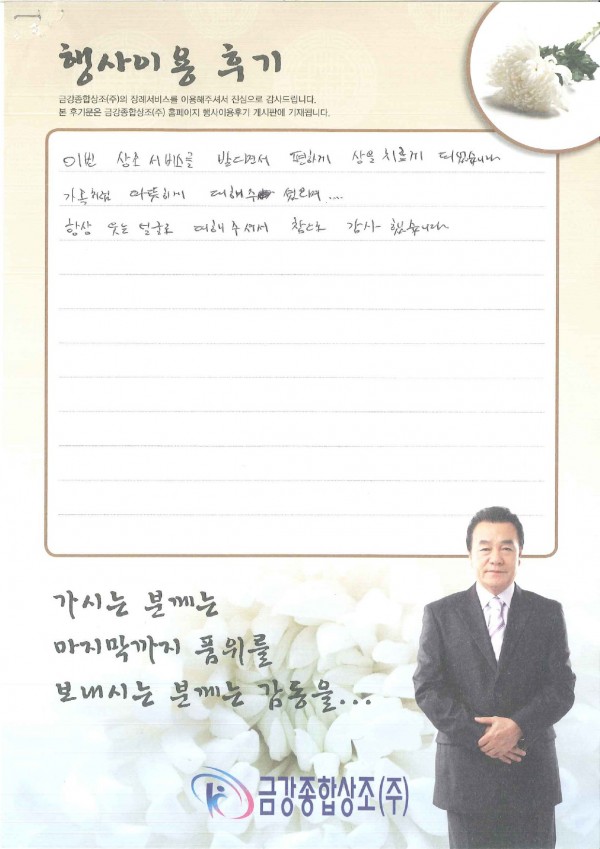 행사이용 후기
금강종합상조(주)의 장례서비스를 이용해주셔서 진심으로 감사드립니다.
본 후기문은 금강종합상조(주) 홈페이지 행사이용후기 게시판에 기재됩니다.
이번 상조 서비스를 받으면서 편하게 상을 치르게 되었습니다
가족처럼 따뜻하게 대해주 셨으며....
항상 웃는 얼굴로 대해 주셔서 참으로 감사 했습니다
가시는 분께는
마지막까지 품위를
보내시는 분께는 감동을...
금강종합상조(주)